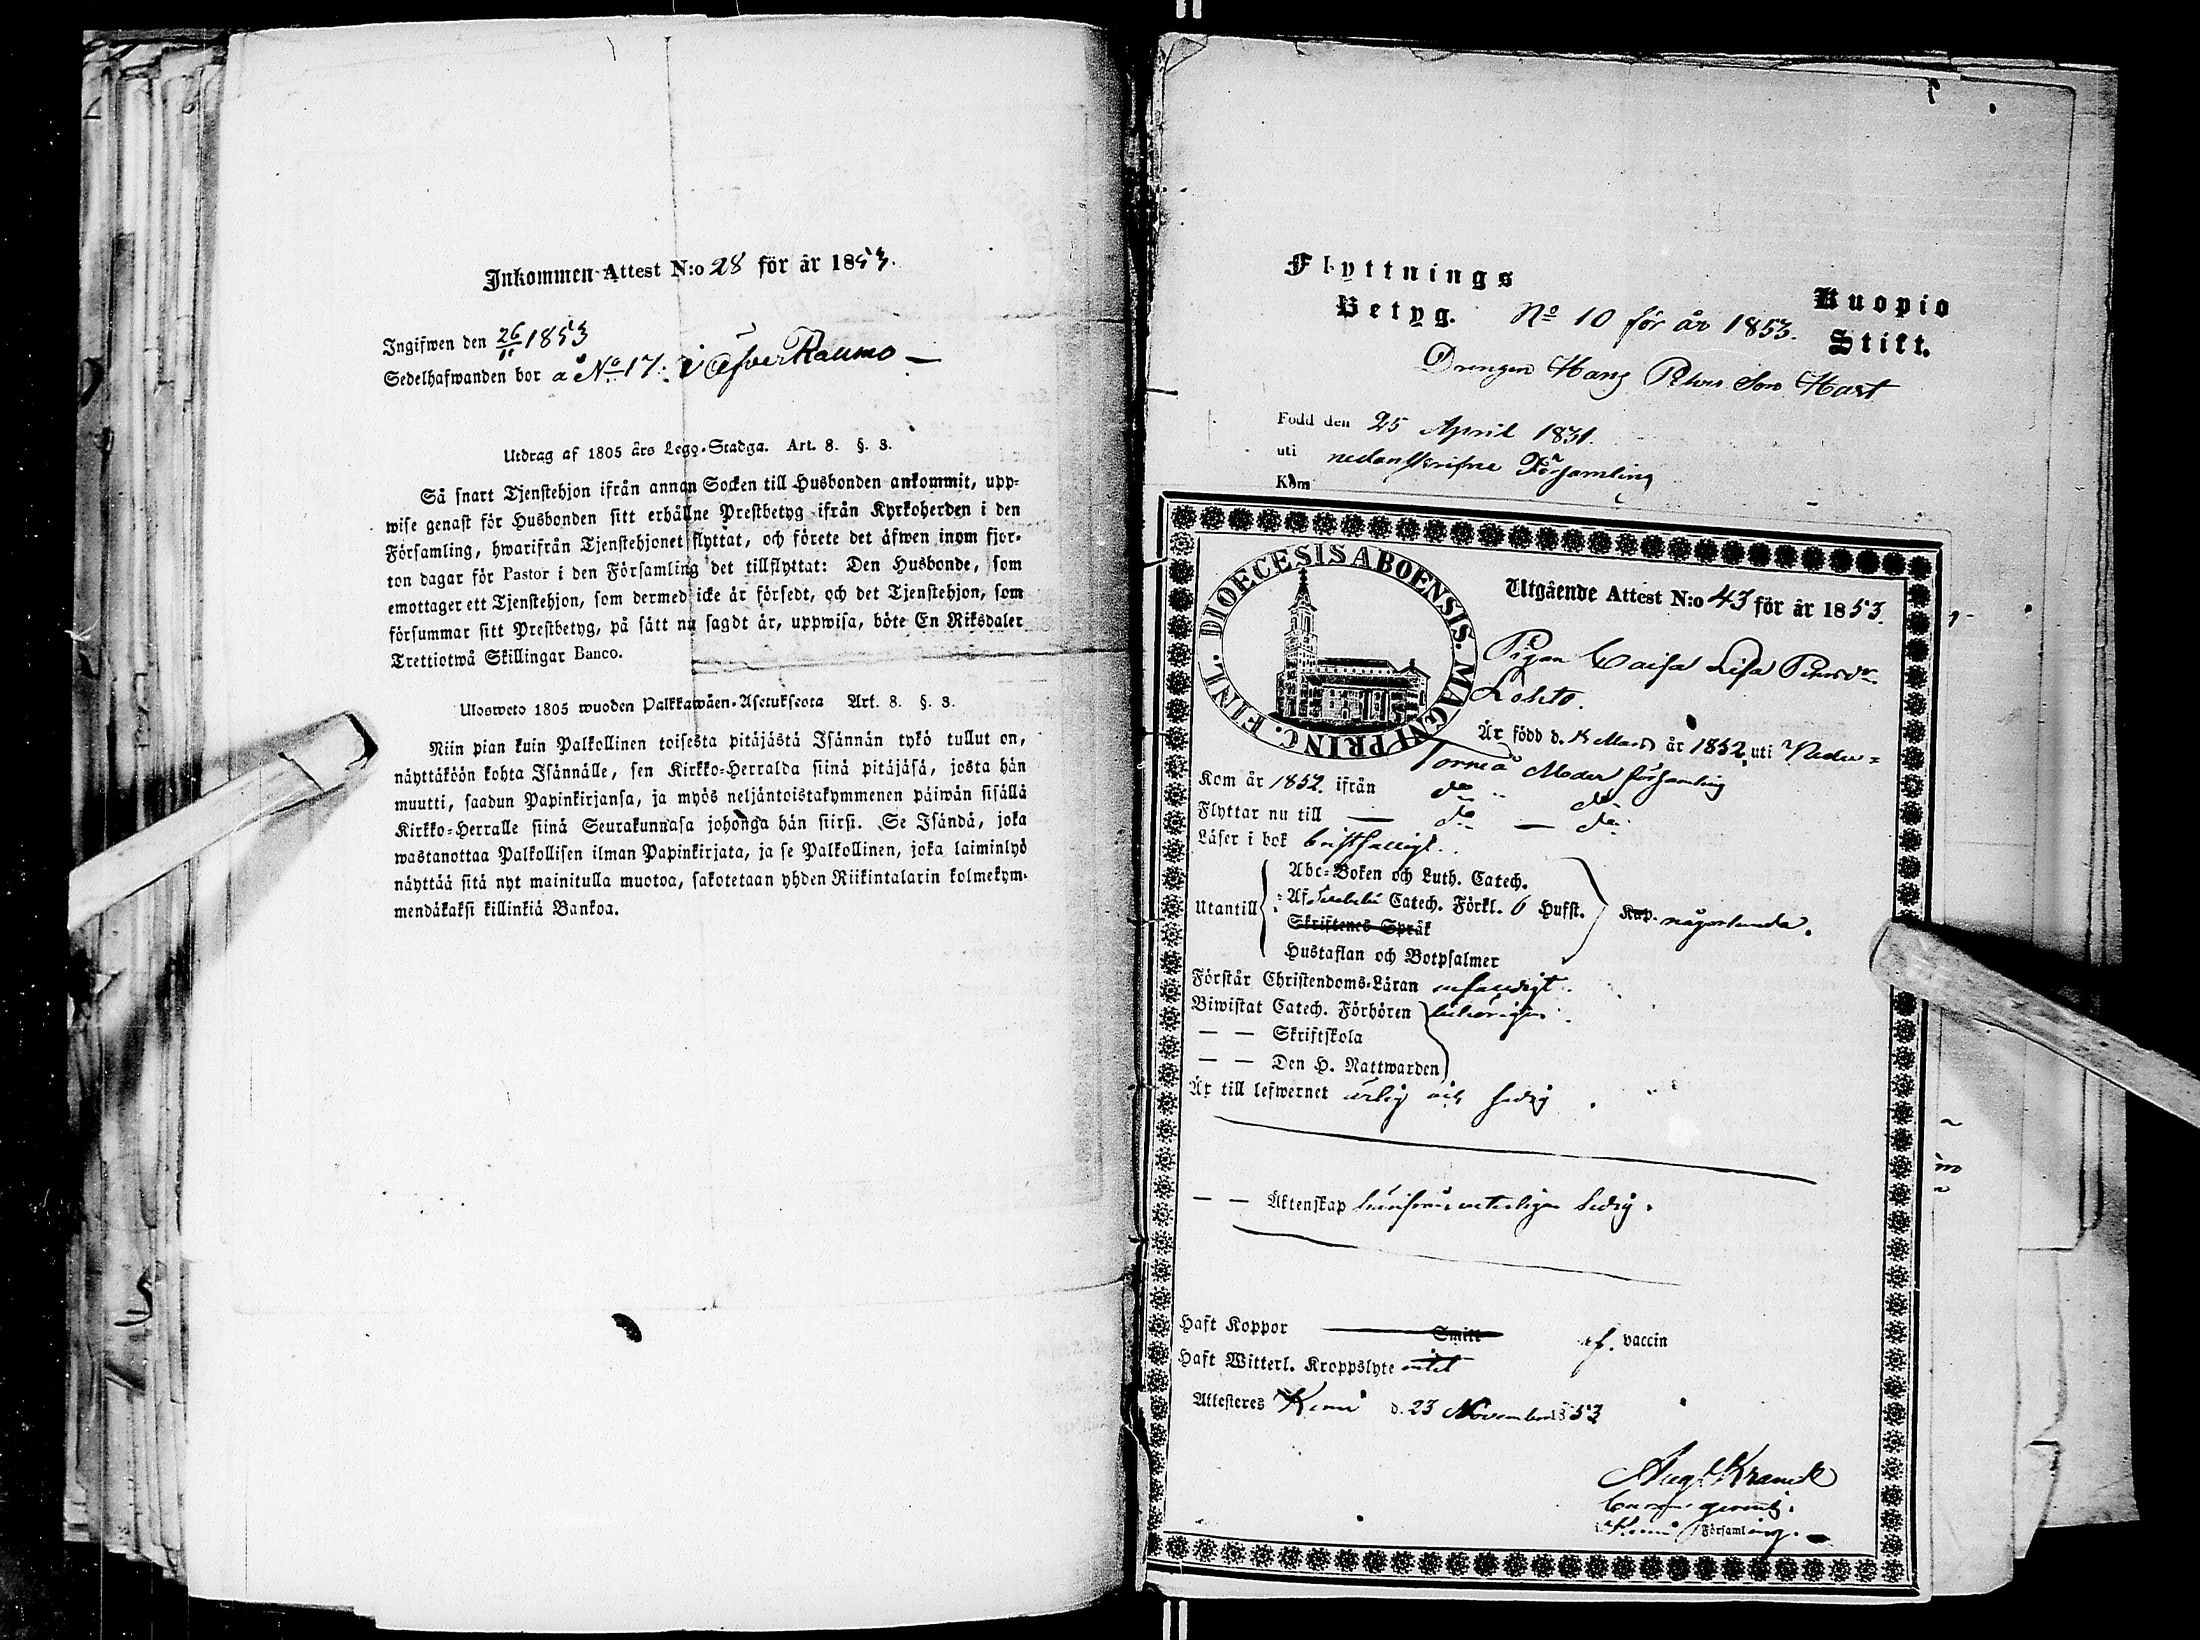 Inkommen Attest N:o 28 för år 1853.
Ingifwen den 26/11 1853
Sedelhafwanden bor å No 17. i Öfver Raumo —
Utdrag af 1805 års Lego-Stadga. Art. 8. §. 3.
Så snart Tjenstehjon ifrån annan Socken till Husbonden ankommit, upp-
wise genast för Husbonden sitt erhållne Prestbetyg ifrån Kyrkoherden i den
Församling, hwarifrån Tjenstehjonet flyttat, och förete det äfwen inom fjor-
ton dagar för Pastor i den Församling det tillflyttat: Den Husbonde, som
emottager ett Tjenstehjon, som dermed icke är försedt, och det Tjenstehjon, som
försummar sitt Prestbetyg, på sätt nu sagdt är, uppwisa, böte En Riksdaler
Trettiotwå Skillingar Banco.
Ulosweto 1805 wuoden Palkkawäen-Asetuksesta Art. 8. §. 3.
Niin pian kuin Palkollinen toisesta pitäjästä Isännän tykö tullut on,
näyttäköön kohta Isännälle, sen Kirkko-Herralda siinä pitäjäsä, josta hän
muutti, saadun Papinkirjansa, ja myös neljäntoistakymmenen päiwän sisällä
Kirkko-Herralle siinä Seurakunnasa johonga hän siirsi. Se Isändä, joka
wastanottaa Palkollisen ilman Papinkirjata, ja se Palkollinen, joka laiminlyö
näyttää sitä nyt mainitulla muotoa, sakotetaan yhden Riikintalarin kolmekym-
mendäkaksi killinkiä Bankoa.
Flyttnings
Betyg. No 10 för år 1853.
Kuopio
Stift.
Drengen Hans Pehrs Son Hast
Född den 25 April 1831.
uti nedanskrifne Församling
Kom
DIOECESIS ABOENSIS. MAGNI PRINC. FINL.
Utgående Attest N:o 43 för år 1853.
Pigan Caisa Lisa Pehrsdr
Lohto.
Är född d. Mars år 1832 uti Neder-
Torneå Moder församling
Kom år 1852. ifrån do do
Flyttar nu till — do — do
Läser i bok
Utantill
Abc-Boken och Luth. Catech.
Af Svebelii Catech. Förkl. 6 Hufst.
Skriftenes Språk
Hustaflan och Botpsalmer
Kap. någorlunda.
Förstår Christendoms-Läran
Biwistat Catech. Förhören behörigen
— — Skriftskola
— — Den H. Nattwarden
Är till lefwernet ärlig och sedig
— — Äktenskap ledig.
Haft Koppor Smitt af. vaccin
Haft Witterl. Kroppslyte intet
Attesteres Kemi d. 23 November 1853
Aug. Kranck
i Kemi Församling.